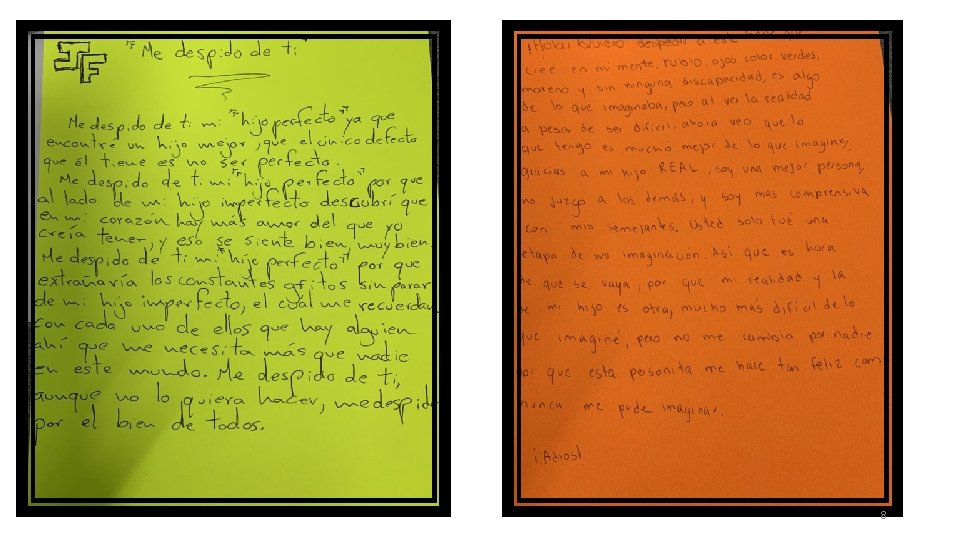 JF
"Me despido de ti"
Me despido de ti mi "hijo perfecto" ya que
encontré un hijo mejor, que el único defecto
que él tiene es no ser perfecto.
Me despido de ti mi "hijo perfecto" por que
al lado de mi hijo imperfecto descubrí que
en mi corazón hay más amor del que yo
creía tener, y eso se siente bien, muy bien.
Me despido de ti mi "hijo perfecto" por que
extrañaría los constantes gritos sin parar
de mi hijo imperfecto, el cual me recuerda
con cada uno de ellos que hay alguien
ahí que me necesita más que nadie
en este mundo. Me despido de ti,
aunque no lo quiera hacer, me despid
por el bien de todos.
¡Hola! Quiero despedir a ese
creé en mi mente, rubio, ojos color verdes,
moreno y sin ninguna discapacidad, es algo
de lo que imaginaba, pero al ver la realidad
a pesar de ser dificil, ahora veo que lo
que tengo es mucho mejor de lo que imaginé,
gracias a mi hijo REAL, soy una mejor persona,
no juzgo a los demás, y soy más comprensiva
con mis semejantes. Usted solo fué una
etapa de mi imaginación. Así que es hora
de que se vaya, por que mi realidad y la
de mi hijo es otra, mucho más dificil de lo
que imaginé, pero no me cambio por nadie
por que esta personita me hace tan feliz com
nunca me pude imaginar.
¡Adios!
8